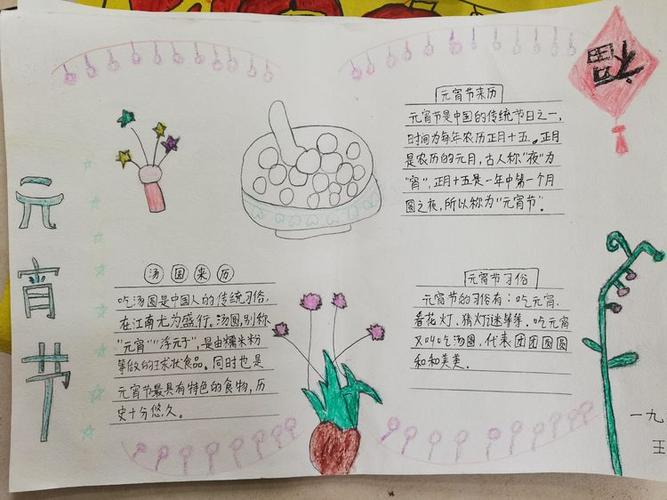 元宵节
福
元宵节来历
元宵节是中国的传统节日之一，
时间为每年农历正月十五。正月
是农历的元月，古人称“夜”为
“宵”，正月十五是一年中第一个月
圆之夜，所以称为“元宵节”。
汤圆来历
吃汤圆是中国人的传统习俗，
在江南尤为盛行。汤圆，别称
“元宵”“浮元子”，是由糯米粉
等做的球状食品。同时也是
元宵节最具有特色的食物，历
史十分悠久。
元宵节习俗
元宵节的习俗有：吃元宵、
看花灯、猜灯谜等等。吃元宵
又叫吃汤圆，代表团团圆圆
和和美美。
一九
王